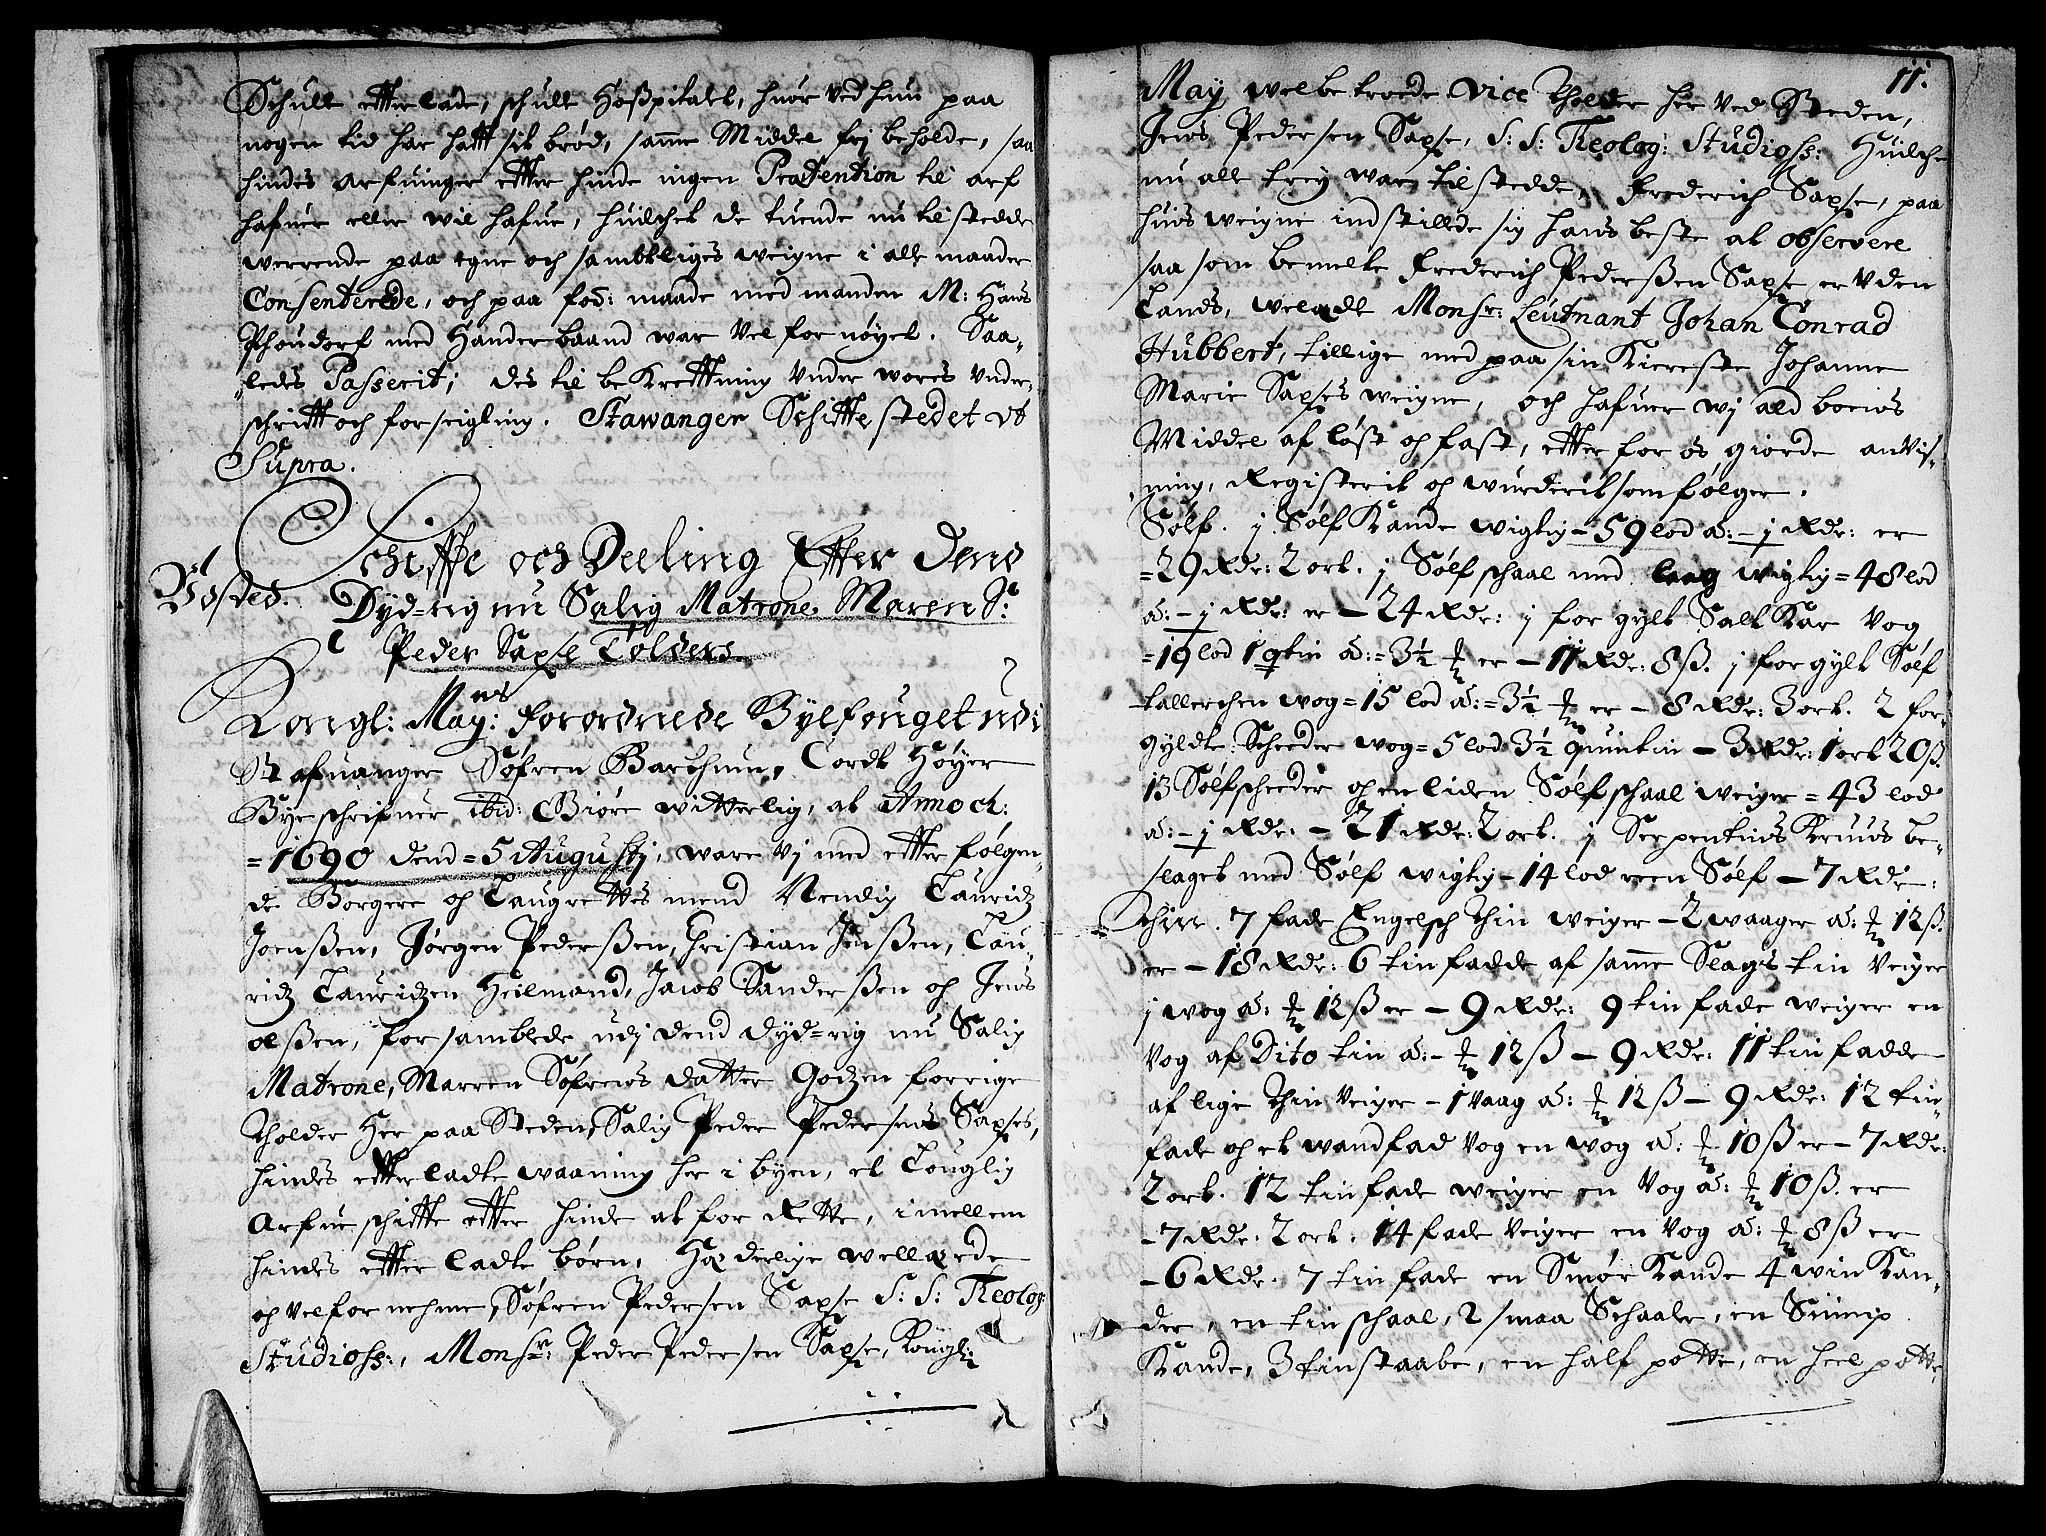 Schull etterlade, schull Hoßpitalet, huor ved hun paa
nogen tid har hafft sit brød, samme Middel frj beholde, saa
hindes arfuinger etter hinde ingen Prætention til arf
hafuer eller wil hafue, huilchet de tuende nu tilstedde
werrende paa egne och sambtliges weigne i alle maader
Consenterede, och paa fod: maade med manden M: Hans
med Hander baand war vel fornøyet. Saa„
„ledes Passerit; des til bekrefftning Under wores Under„
schrifft och forseigling. Stawanger Schiffte stedet ut
Supra.
Schiffte och Deeling Effter Dend
Dyd=rig nu Salig Matrone, Maren Sl:
Peder Sapse Tolders
Kongl: Mayns: forordnede Byefouget udi
Stafuanger Søfren Barthun, Cordt Høyer
Byeschrifuer ibid: Giøre witterlig, at Anno ch:
=1690 dend =5 Augustj, ware vj med etterfølgen„
de Borgere og Laugrettes mend Nendig Lauridz
Joenßen, Jørgen Pederßen, Christian Jenßen, Lau„
ridz Lauridzen Heilmand, Jacob Sanderßen og Jens
olßen, forsamblede udj dend dyd=rig nu Salig
Matrone, Marren Søfrens datter Godzen forrige
Tholder Her paa Steden, Salig Peder Pedersens Sapses,
hindes etterladte waaning her i byen, et Louglig
Arfueschiffte etter hinde at forrette, imellem
hindes etterladte børn, Hæderlige wellærde
og velfornehme, Søfren Pedersen Sapse S: S: Theolog:
Studioss:, Monsr: Peder Pedersen Sapse, Kongl:
11.
May welbetroede Vice Tholder her ved Steden,
Jens Pedersen Sapse, S: S: Theolog: Studioss: Huilche
nu alle trey war tilstedde, Frederich Sapse, paa
huis weigne indstillede sig hans beste at observere
saa som bemelte Frederich Pederßen Sapse er uden
Lands, weladt Monsr: Leutnant Johan Conrad
Hubbert, tillige med paa sin Kiereste Johanne
Marie Sapses weigne, och hafuer wj ald boens
Middel af løst og fast, etter for os giorde anvis„
„ning, Registerit og wurderit som følger.
Sølf. j Sølf Kande wigtig – 59 lod á: – j Rdr: er
=29 Rdr: 2 ort. j Sølf schaal med laag wigtig = 48 lod
á: – j Rdr: er – 24 Rdr: j forgylt Salt Kar vog
=19 lod 1 qtin á: = 3½ ₰ er – 11 Rdr: 8 ß. j forgylt Sølf
tallerchen wog = 15 lod á: = 3½ ₰ er – 8 Rdr: 3 ort. 2 for„
gyldte Scheeder wog = 5 lod 3½ quintin – 3 Rdr: 1 ort 20 ß.
13 Sølfscheeder og en liden Sølf schaal weiger = 43 lod
á: – j Rdr: – 21 Rdr: 2 ort. j Serpentins Kruus be„
slaget med Sølf wigtig – 14 lod reen Sølf – 7 Rdr:
Thin. 7 fade Engelsch Thin weiger – 2 waager á: ₰ 12 ß.
er – 18 Rdr: 6 tin fadde af samme Slags tin Veiger
j wog á: ₰ 12 ß er – 9 Rdr: 9 tin fade weiger en
vog af Dito tin á: – ₰ 12 ß – 9 Rdr: 11 tin fadde
af lige Thin Veiger – 1 vaag á: ₰ 12 ß – 9 Rdr: 12 tin„
fade og et wand fad vog en wog á: ₰ 10 ß er – 7 Rdr:
2 ort. 12 tin fade weiger en Vog á: ₰ 10 ß. er
– 7 Rdr: 2 ort. 14 fade Veiger en Vog á: ₰ 8 ß er
– 6 Rdr. 7 tin fade en Smør Kande 4 win Kan„
der, en tin schaal, 2 smaa Schaaler, en
Kande, 3 tin staabe, en half potte, en heel potte,